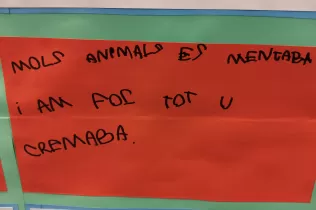 MOLS ANIMALS ES MENTABA
i AM FOC TOT U
CREMABA.